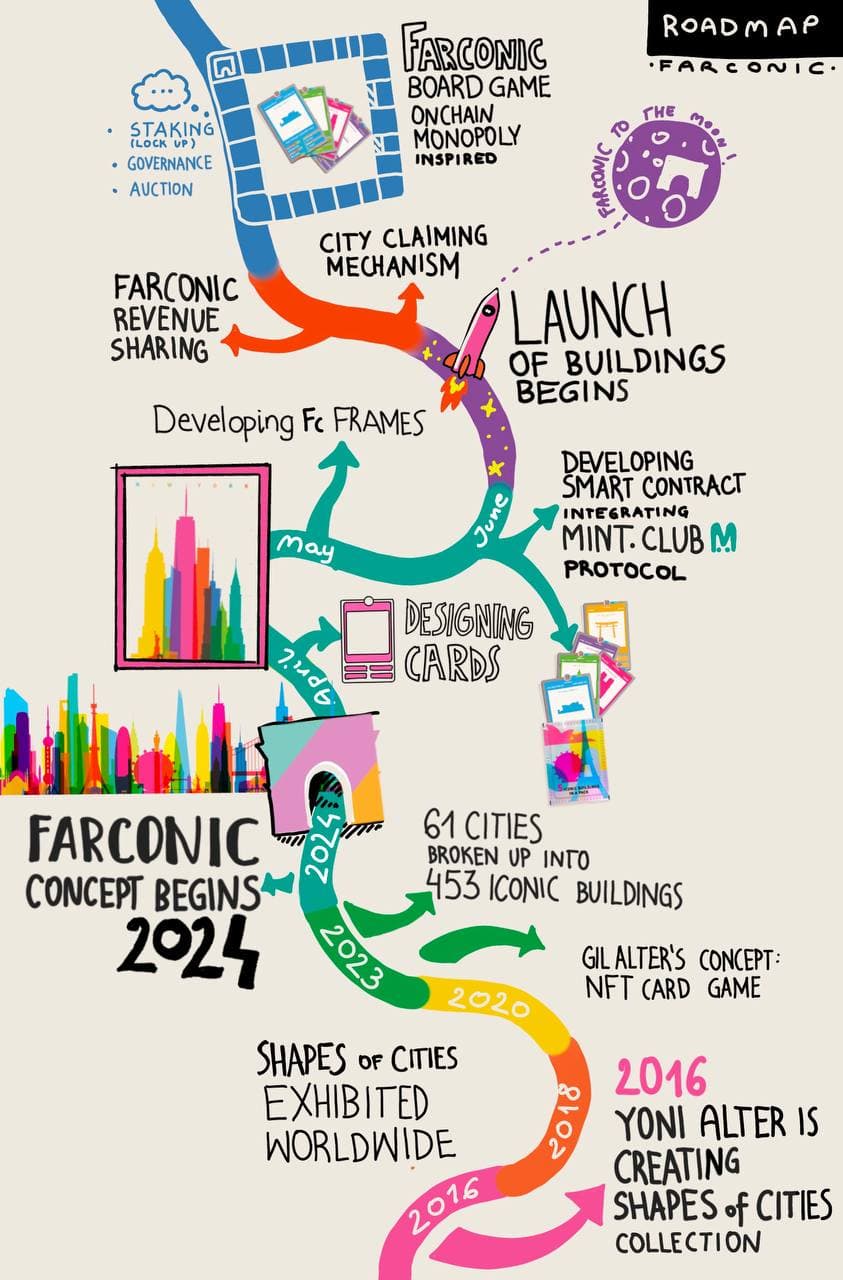 ROADMAP
·FARCONIC·
FARCONIC
BOARD GAME
ONCHAIN
MONOPOLY
INSPIRED
• STAKING
(LOCK UP)
• GOVERNANCE
• AUCTION
FARCONIC TO THE MOON!
CITY CLAIMING
MECHANISM
FARCONIC
REVENUE
SHARING
LAUNCH
OF BUILDINGS
BEGINS
Developing Fc FRAMES
DEVELOPING
SMART CONTRACT
INTEGRATING
MINT.CLUB M
PROTOCOL
June
May
NEW YORK
april
DESIGNING
CARDS
2024
FARCONIC
CONCEPT BEGINS
2024
61 CITIES
BROKEN UP INTO
453 ICONIC BUILDINGS
2023
GIL ALTER'S CONCEPT:
NFT CARD GAME
2020
SHAPES OF CITIES
EXHIBITED
WORLDWIDE
2018
2016
YONI ALTER IS
CREATING
SHAPES of CITIES
COLLECTION
2016